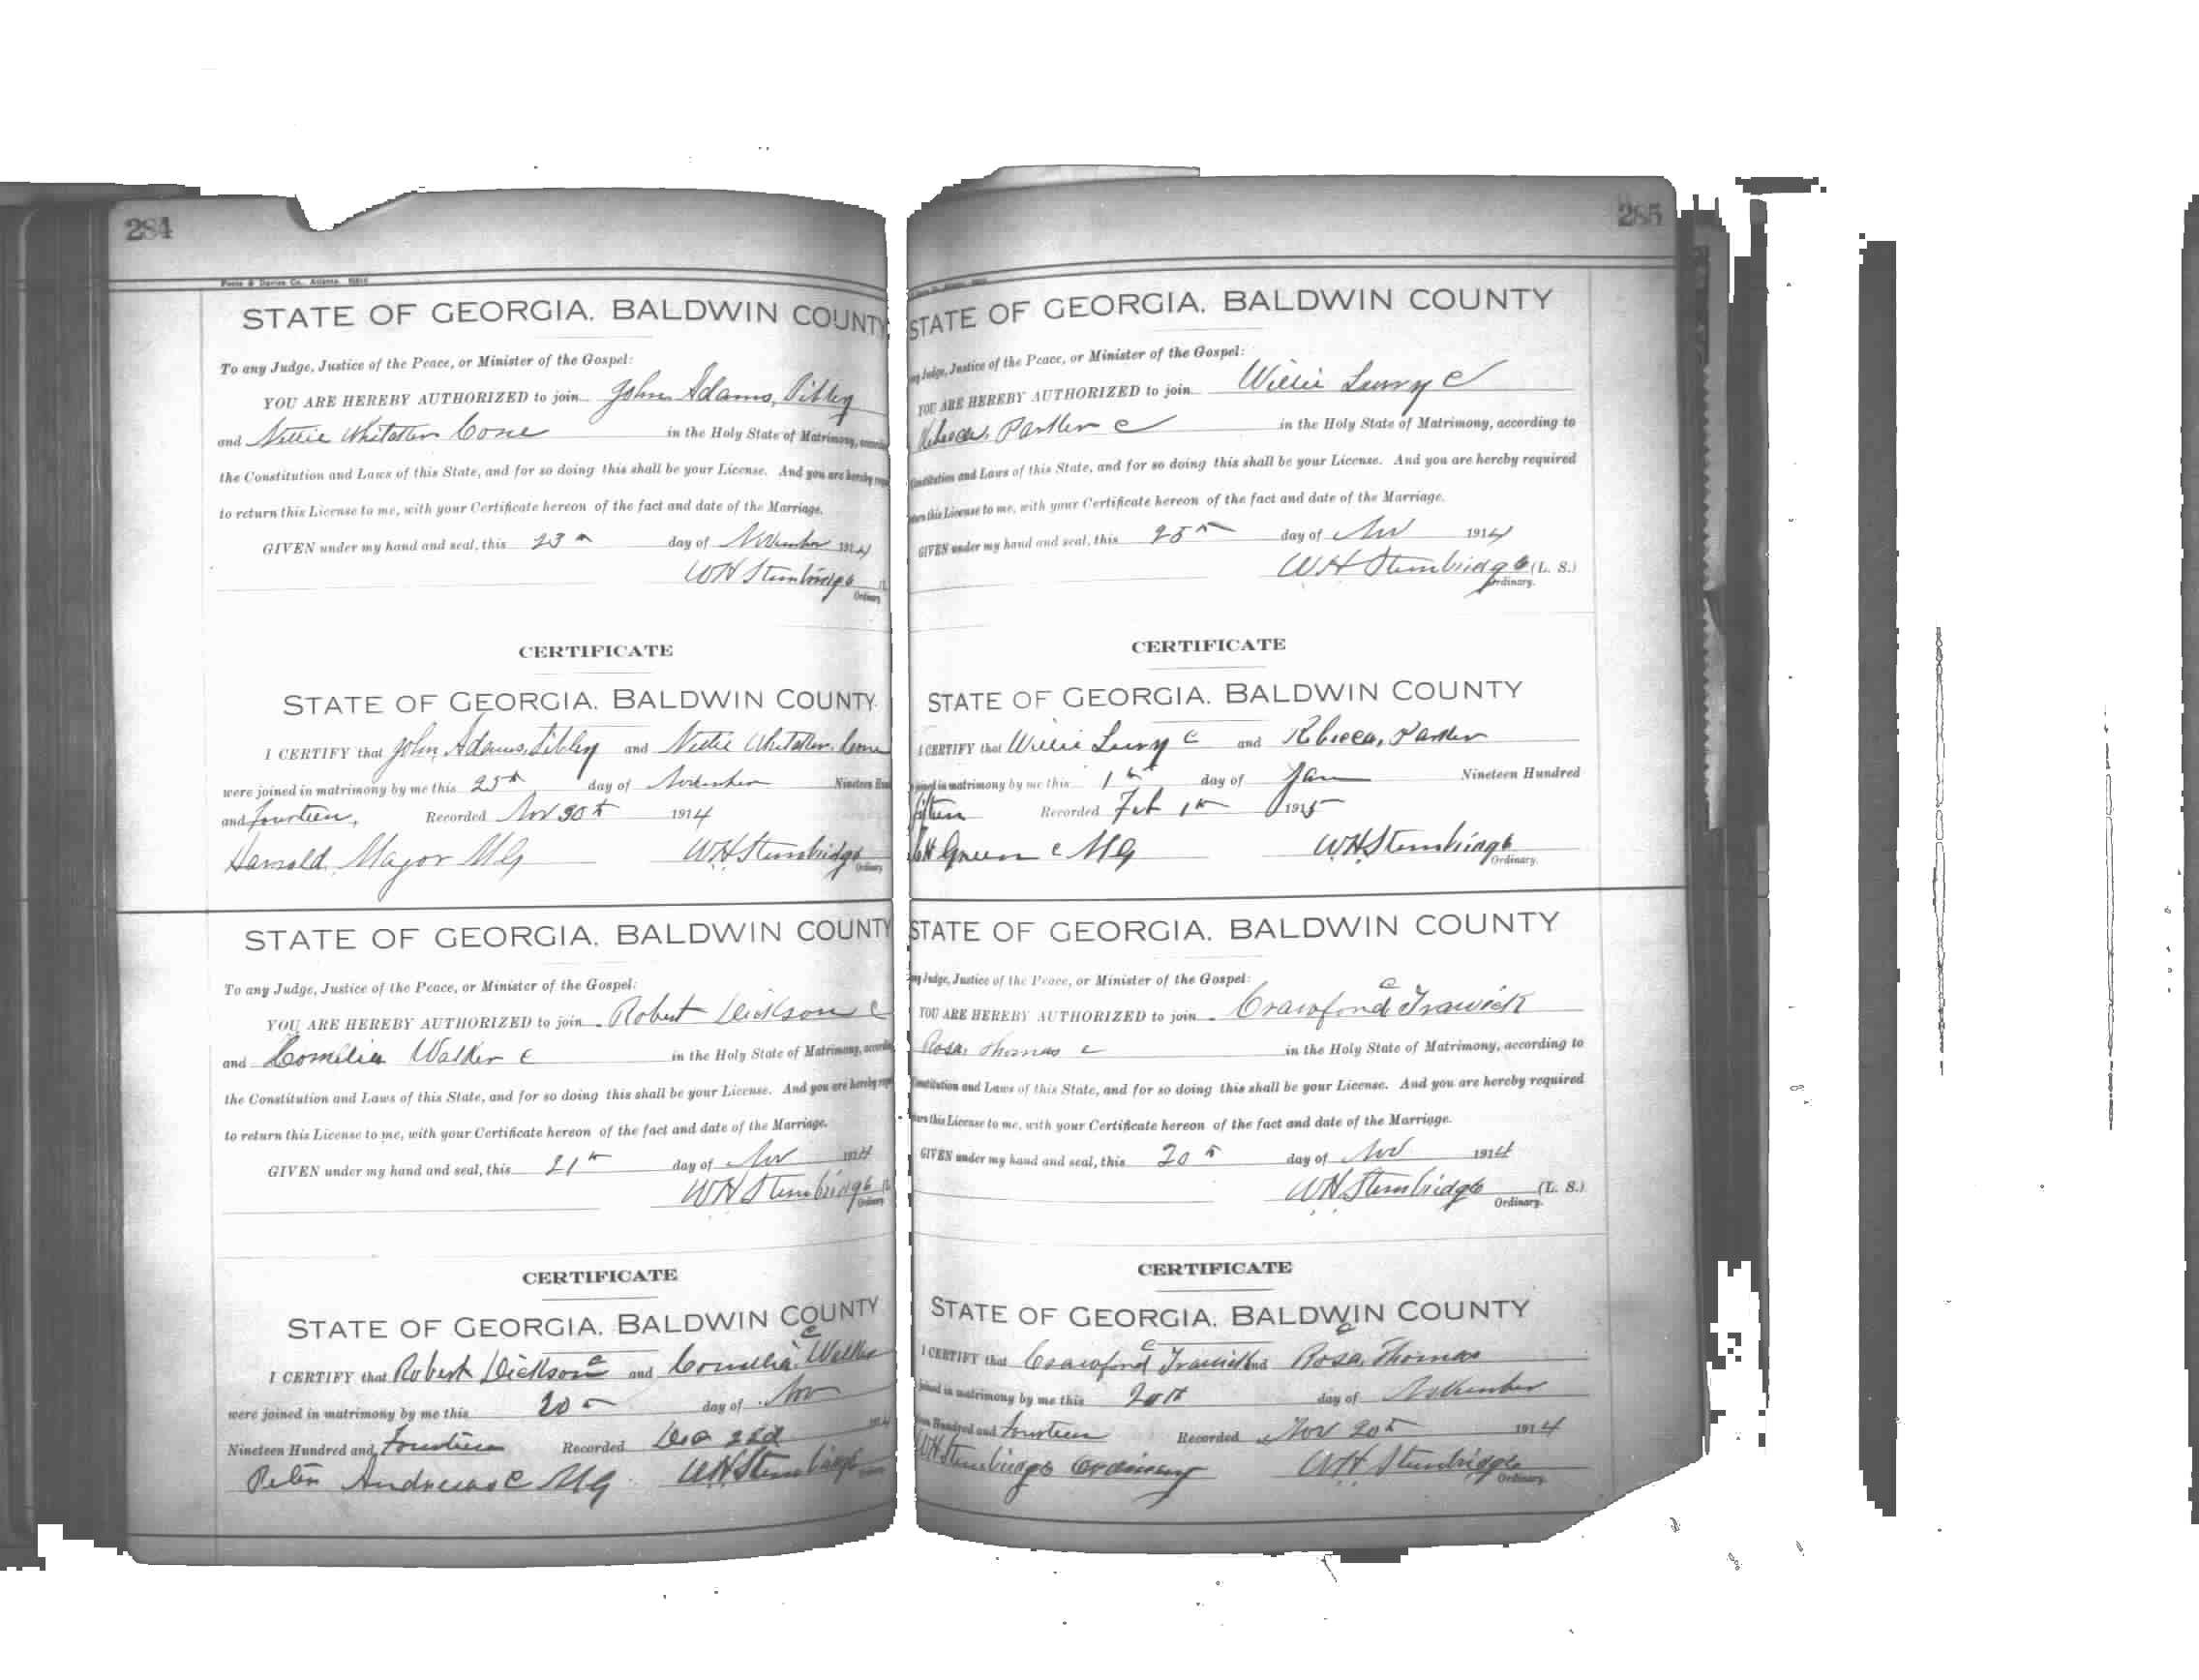 284
Foote & Davies Co., Atlanta
STATE OF GEORGIA, BALDWIN COUNTY
To any Judge, Justice of the Peace, or Minister of the Gospel:
YOU ARE HEREBY AUTHORIZED to join John Adams, Sibley
and Nettie Whitaker Cone in the Holy State of Matrimony,
the Constitution and Laws of this State, and for so doing this shall be your License. And you are hereby
to return this License to me, with your Certificate hereon of the fact and date of the Marriage.
GIVEN under my hand and seal, this 23 day of November 1914
WH Stembridge
Ordinary
CERTIFICATE
STATE OF GEORGIA, BALDWIN COUNTY
I CERTIFY that John Adams, Sibley and Nettie Whitaker Cone
were joined in matrimony by me this 25th day of November Nineteen
and fourteen, Recorded Nov 30th 1914
Harrold Major MG WH Stembridge
Ordinary
STATE OF GEORGIA, BALDWIN COUNTY
To any Judge, Justice of the Peace, or Minister of the Gospel:
YOU ARE HEREBY AUTHORIZED to join Robert Dickson C
and Cornelia Walker c in the Holy State of Matrimony,
the Constitution and Laws of this State, and for so doing this shall be your License. And you are hereby
to return this License to me, with your Certificate hereon of the fact and date of the Marriage.
GIVEN under my hand and seal, this 21th day of Nov 1914
WH Stembridge
Ordinary
CERTIFICATE
STATE OF GEORGIA, BALDWIN COUNTY
I CERTIFY that Robert Dickson c and Cornelia c Walker
were joined in matrimony by me this 20 day of Nov
Nineteen Hundred and Fourteen Recorded 1914
Peter Andrews C MG WH Stembridge
285
STATE OF GEORGIA, BALDWIN COUNTY
Judge, Justice of the Peace, or Minister of the Gospel:
YOU ARE HEREBY AUTHORIZED to join Willie C
Rebecca, Parker C in the Holy State of Matrimony, according to
Constitution and Laws of this State, and for so doing this shall be your License. And you are hereby required
this License to me, with your Certificate hereon of the fact and date of the Marriage.
GIVEN under my hand and seal, this 25th day of Nov 1914
WH Stembridge (L. S.)
Ordinary.
CERTIFICATE
STATE OF GEORGIA, BALDWIN COUNTY
I CERTIFY that Willie C and Rebecca, Parker
joined in matrimony by me this 1st day of Jan Nineteen Hundred
fifteen Recorded Feb 1st 1915
Green c MG WH Stembridge
Ordinary.
STATE OF GEORGIA, BALDWIN COUNTY
Judge, Justice of the Peace, or Minister of the Gospel:
YOU ARE HEREBY AUTHORIZED to join Crawford c Trawick
Rosa, Thomas c in the Holy State of Matrimony, according to
Constitution and Laws of this State, and for so doing this shall be your License. And you are hereby required
this License to me, with your Certificate hereon of the fact and date of the Marriage.
GIVEN under my hand and seal, this 20th day of Nov 1914
WH Stembridge (L. S.)
Ordinary.
CERTIFICATE
STATE OF GEORGIA, BALDWIN COUNTY
I CERTIFY that Crawford c Trawick and Rosa, c Thomas
joined in matrimony by me this 20th day of November
Hundred and fourteen Recorded Nov 20th 1914
WH Stembridge Ordinary WH Stembridge
Ordinary.